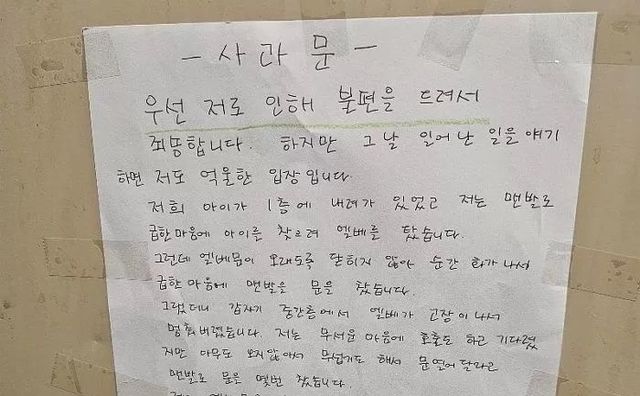 - 사 과 문 -
우선 저로 인해 불편을 드려서
죄송합니다. 하지만 그날 일어난 일을 얘기
하면 저도 억울한 입장입니다.
저희 아이가 1층에 내려가 있었고 저는 맨발로
급한마음에 아이를 찾으려 엘베를 탔습니다.
그런데 엘베문이 오래도록 닫히지 않아 순간 화가나서
급한 마음에 맨발로 문을 찼습니다.
그랬더니 갑자기 중간층에서 엘베가 고장이 나서
멈춰버렸습니다. 저는 무서운 마음에 호출도 하고 기다렸
지만 아무도 오지않아서 무섭기도 해서 문열어 달라고
맨발로 문을 몇번 찼습니다.